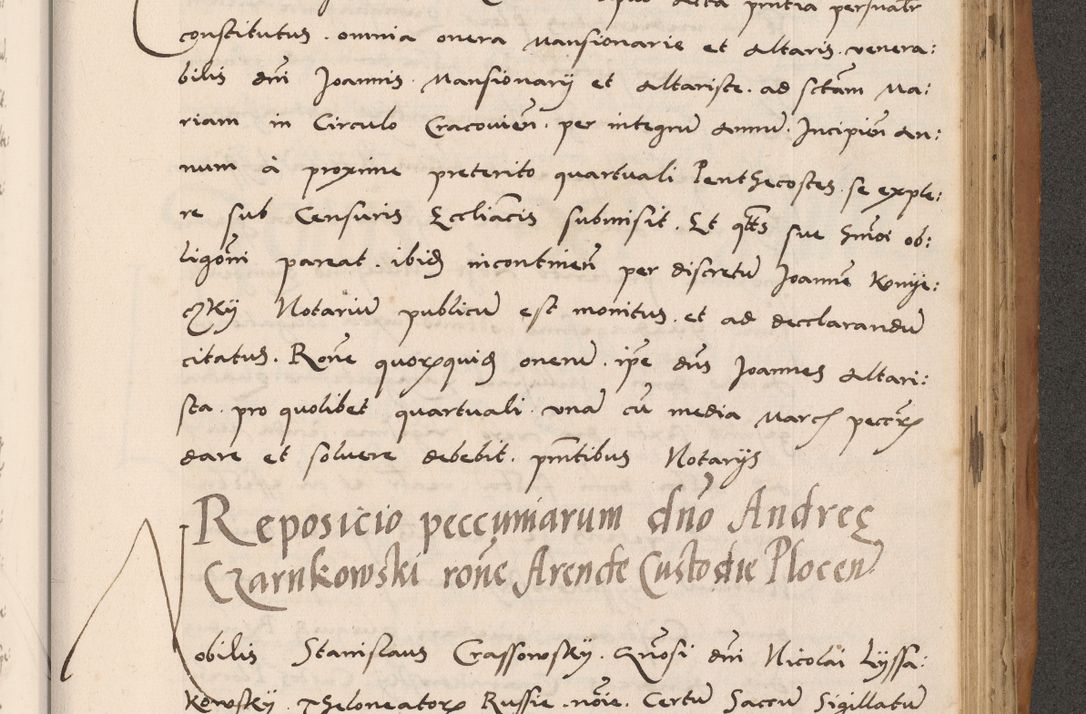 acta pritia persualr
constitutus . omnia onera Mansionarie et Altaris . venera:
bilis dni Joannis . Mansionarij et Altariste . ad sctam Ma:
riam in Circulo Cracovien . per integru Annu . Incipien An:
num à proxime preterito quartuali Penthecostes . se exple:
re sub Censuris Eccliacis submisit . Et qtts sue hmoi ob:
ligoni pareat . ibid incontinen per discretu Joanne Konye:
czky Notariu publicu est monitus . et ad declarandu
citatus . Rone quorquid oneru . ipe dns Joannes Altari:
sta . pro quolibet quartuali . una cu media March peccر
dare et solvere debebit . pntibus Notarijs
Reposicio peccuniarum dno Andreę
Czarnkowski rone Arende Custodie Plocen
Nobilis Stanislaus Crassowsky . Quosi dni Nicolai Lyssa:
kowsky . Theloneator Russie . noie . Certu Saccu Sigillatu